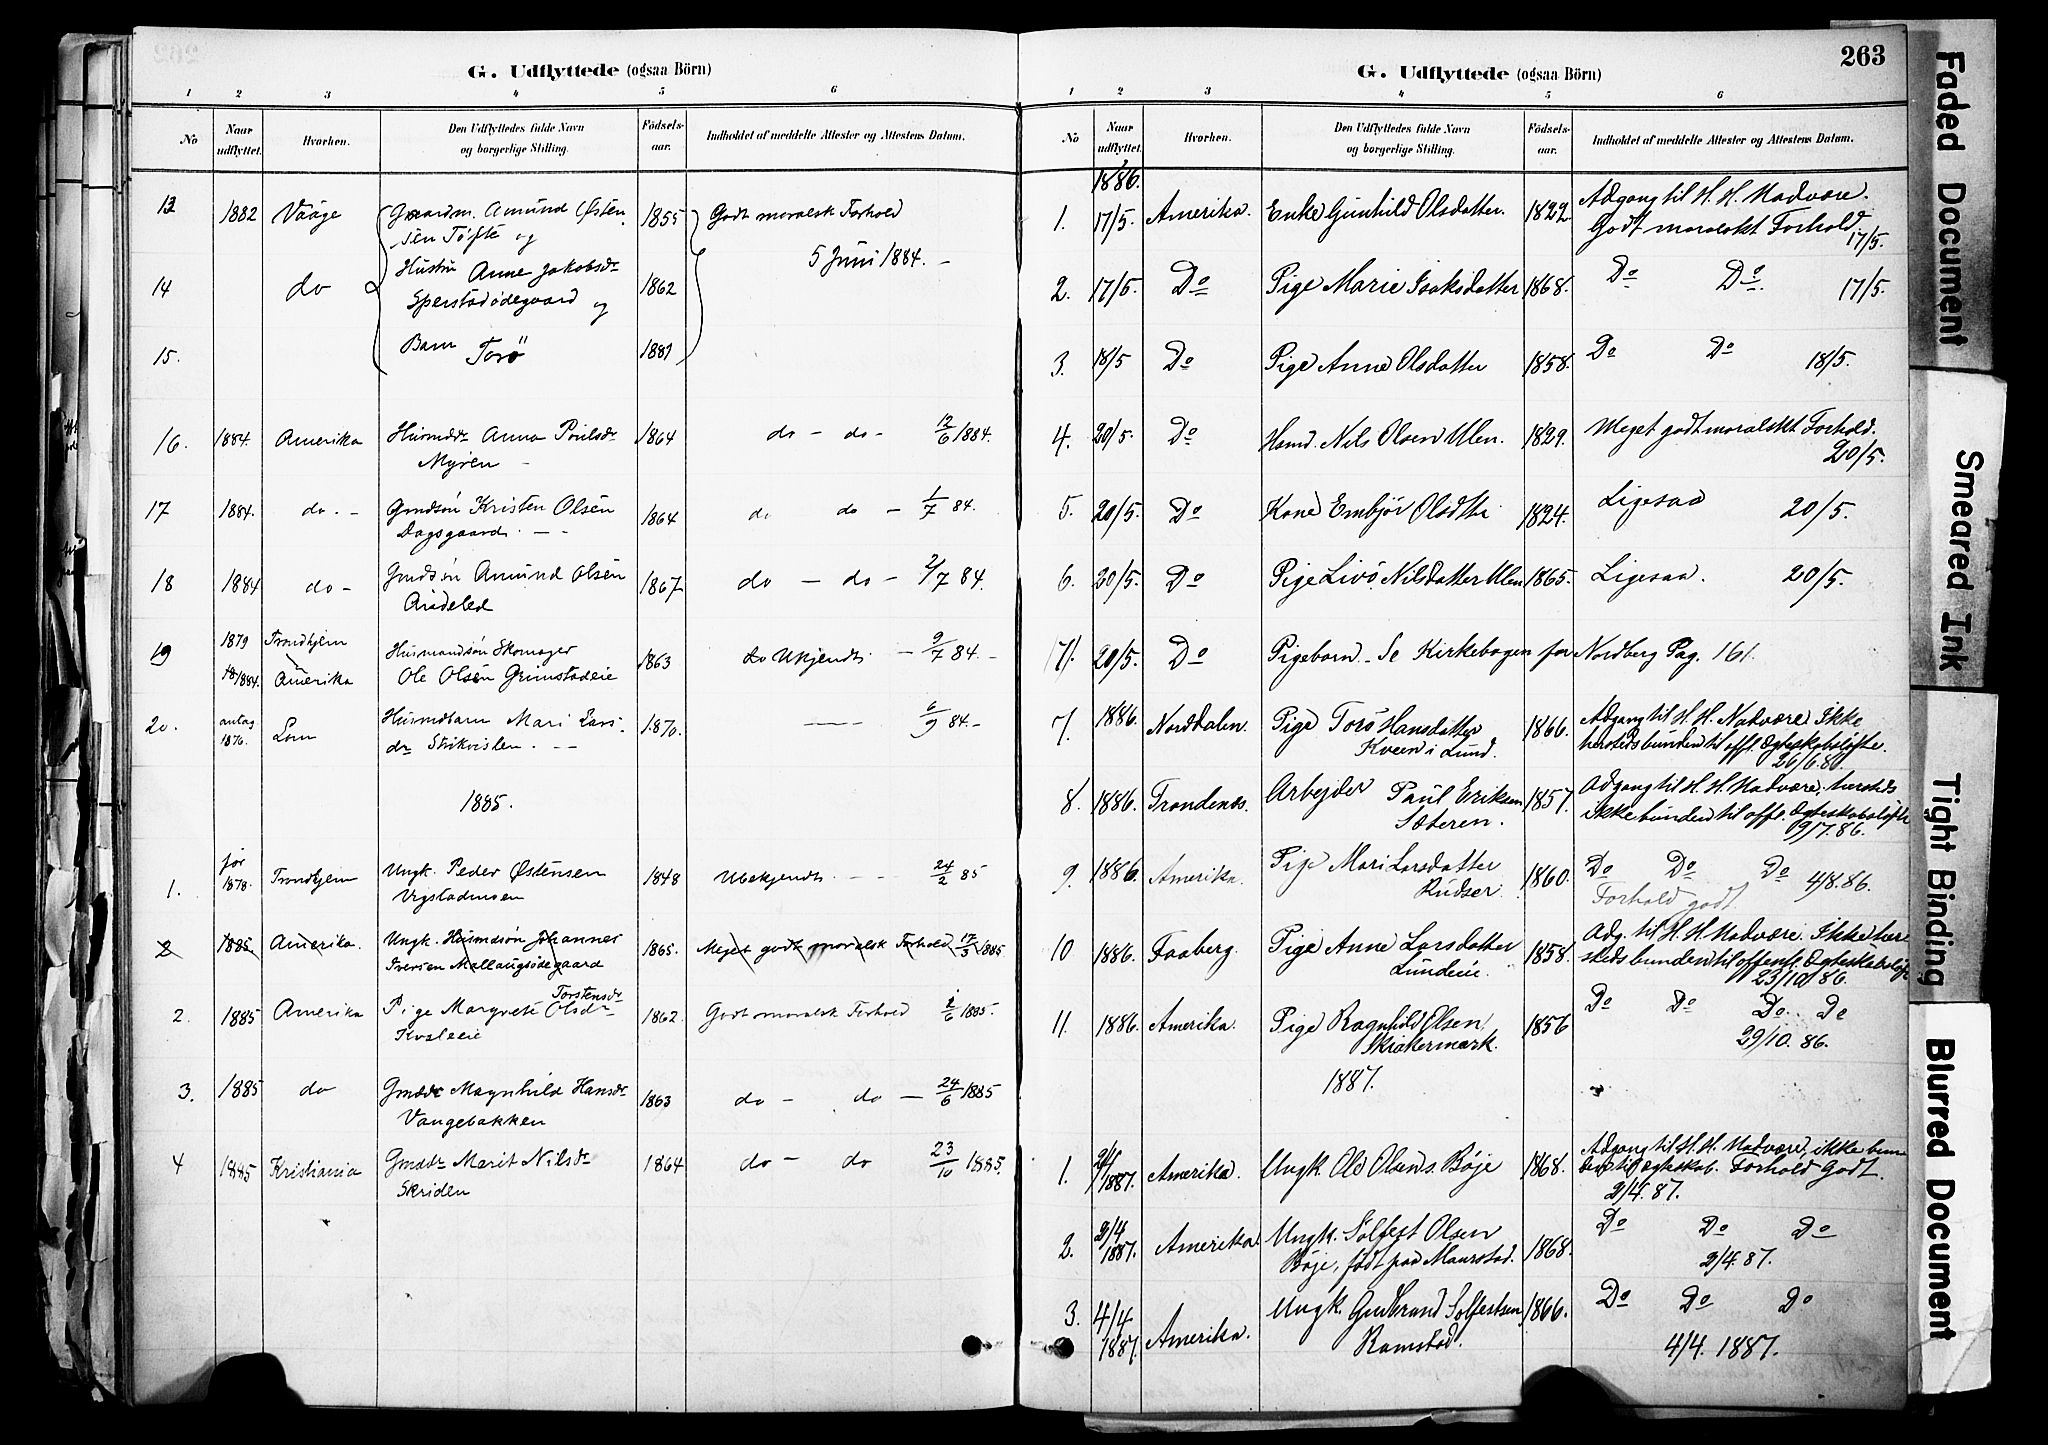 G. Udflyttede (ogsaa Börn)
1 2 3 4 5 6
No
Naar udflyttet.
Hvorhen.
Den Udflyttedes fulde Navn og borgerlige Stilling.
Födsels-aar.
Indholdet af meddelte Attester og Attestens Datum.
13 1882 Vaage Gaardm. Amund Østen 1855 Godt moralsk Forhold
sen Tøfte og 5 Juni 1884. —
14 do Hustru Anne Jakobsdr 1862
Sperstadødegaard og
15. Barn Torø 1881
16. 1884. Amerika Husmdr Anna Poulsdr 1864 do — do — 12/6 1884.
Myren —
17 1884. do. — Gmdsøn Kristen Olsen 1864 do do — 1/7 84.
Dagsgaard. — —
18 1884 do — Gmdsøn Amund Olsen 1867 do — do — 2/7 84.
19 1879 Trondhjem Husmandsøn Skomager 1863 do Ukjendt. — 9/7 84. —
1884. Amerika Ole Olsen Grimstadeie
20. antag 1876. Lom Husmdbarn Mari Lars- 1870. —— 6/9 84. —
dr
1885.
1. før 1878. Trondhjem Ungk. Peder Østensen 1848 Ubekjendt. — — 24/2 85
Vigstadmoen
2 1885 Amerika. Ungk. Husmdsøn Johannes 1865. Meget godt moralsk Forhold 17/5 1885
Iversen Mallaugsødegaard
Torstensdr
2. 1885 Amerika Pige Margrete Olsdr 1862. Godt moralsk Forhold 1/6 1885.
3. 1885 do Gmdr Magnhild Hansdr 1863 do — do — 24/6 1885
Vangebakken
4 1885 Kristiania Gmdr Marit Nilsdr 1864 do — do 23/10 1885.
Skriden
263
G. Udflyttede (ogsaa Börn)
1 2 3 4 5 6
No
Naar udflyttet.
Hvorhen.
Den Udflyttedes fulde Navn og borgerlige Stilling.
Födsels-aar.
Indholdet af meddelte Attester og Attestens Datum.
1886.
1. 17/5. Amerika. Enke Gunhild Olsdatter. 1822. Adgang til H. H. Nadvere.
Godt moralskt Forhold. 17/5.
2. 17/5. Do Pige Marie Isaksdatter 1868. Do Do. 17/5.
3. 18/5 Do Pige Anne Olsdatter 1858. Do Do 18/5.
4. 20/5. Do Hsmd. Nils Olsen Ulen. 1829. Meget godt moralskt Forhold.
20/5.
5. 20/5. Do Kone Embjør Olsdtr 1824. Ligesaa 20/5.
6. 20/5. Do Pige Livø Nilsdatter Ulen 1865. Ligesaa. 20/5.
7. 20/5. Do Pigebarn. Se Kirkebogen for Nordberg Pag. 161.
7. 1886. Norddalen. Pige Torø Hansdatter 1866. Adgang til H. H. Nadvære. Ikke
Kveen i Lund. hersteds bunden til offl. Egteskabsløfte.
26/6.86.
8. 1886. Trondenæs. Arbejder Paul Eriksen 1857. Adgang til H. H. Nadvære, hersteds
Sæteren. ikke bunden til offe. Egteskabsløfte
9/7.86.
9. 1886. Amerika. Pige Mari Larsdatter 1860. Do Do Do 4/8.86.
Rudser. Forhold godt.
10 1886. Faaberg. Pige Anne Larsdatter 1858. Adg. til H. H. Nadvære. Ikke her
Lundeie. steds bunden til offentl. Egteskabsløfte
23/10 86.
11. 1886. Amerika. Pige Ragnhild Olsen 1856 Do Do Do. De
Skiakermark. 29/10. 86.
1887.
1. 2/4 1887. Amerika. Ungk. Ole Olsen s. Bøje 1868. Adgang til H. H. Nadvære, ikke bun
den til Egteskab. Forhold Godt.
2/4. 87.
2. 2/4 1887. Amerika. Ungk. Sølfest Olsen 1868. Do Do Do
Bøje, født paa Maurstad. 2/4. 87.
3. 4/4 1887. Amerika. Ungk. Gudbrand Solfestsen 1866. Do Do Do
Ramstad. 4/4. 1887.
Faded Document
Smeared Ink
Tight Binding
Blurred Document